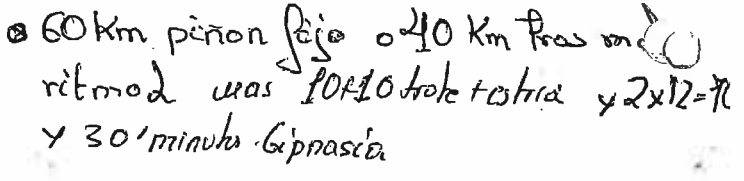 60 Km piñon fijo o 40 Km tras
ritmo 2 mas 10+10 trote y 2x12=
y 30' minutos Gipnasia